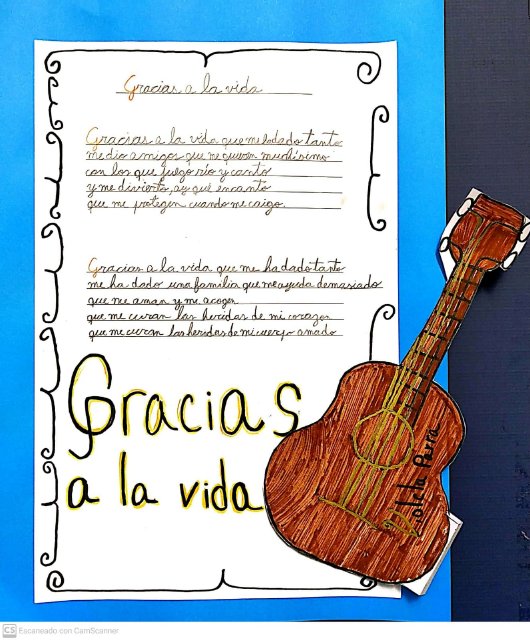 Gracias a la vida
Gracias a la vida que me ha dado tanto
me dio amigos que me quieren muchísimo
con los que juego río y canto
y me divierto, ay qué encanto
que me protegen cuando me caigo.
Gracias a la vida que me ha dado tanto
me ha dado una familia que me ayuda demasiado
que me aman y me acogen
que me curan las heridas de mi corazon
que me curan las heridas de mi cuerpo amado
Gracias
a la vida
Violeta Parra
CS Escaneado con CamScanner